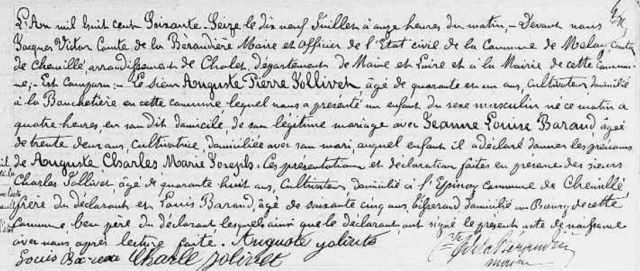 L'An mil huit cent soixante-seize le dix neuf Juillet à onze heures du matin,- Devant nous
Jacques Victor Comte de la Bérandière Maire et Officier de l'Etat civil de la Commune de Melay, Canton
de Chemillé, arrondissement de Cholet, département de Maine et Loire et à la Mairie de cette Commu-
ne; - Est Comparu:- Le sieur Auguste Pierre Jolivet, âgé de quarante et un ans, Cultivateur, domicilié
à la Banchetière en cette Commune lequel nous a présenté un enfant du sexe masculin né ce matin à
quatre heures, en son dit domicile, de son légitime mariage avec Jeanne Louise Baraud, âgée
de trente deux ans, Cultivatrice, domiciliée avec son mari, auquel enfant il a déclaré donner les prénoms
de Auguste Charles Marie Joseph. Ces présentation et déclaration faites en présence des sieurs
Charles Jollivet, âgé de quarante huit ans, Cultivateur, domicilié à l'Epinay Commune de Chemillé
frère du déclarant et Louis Baraud, âgé de soixante cinq ans, tisserand domicilié au Bourg de cette
Commune, beau père du déclarant lesquels ainsi que le déclarant ont signé le présent acte de naissance
avec nous après lecture faite. Auguste Jolivete
Louis Bareau Charle Jolivet
maire